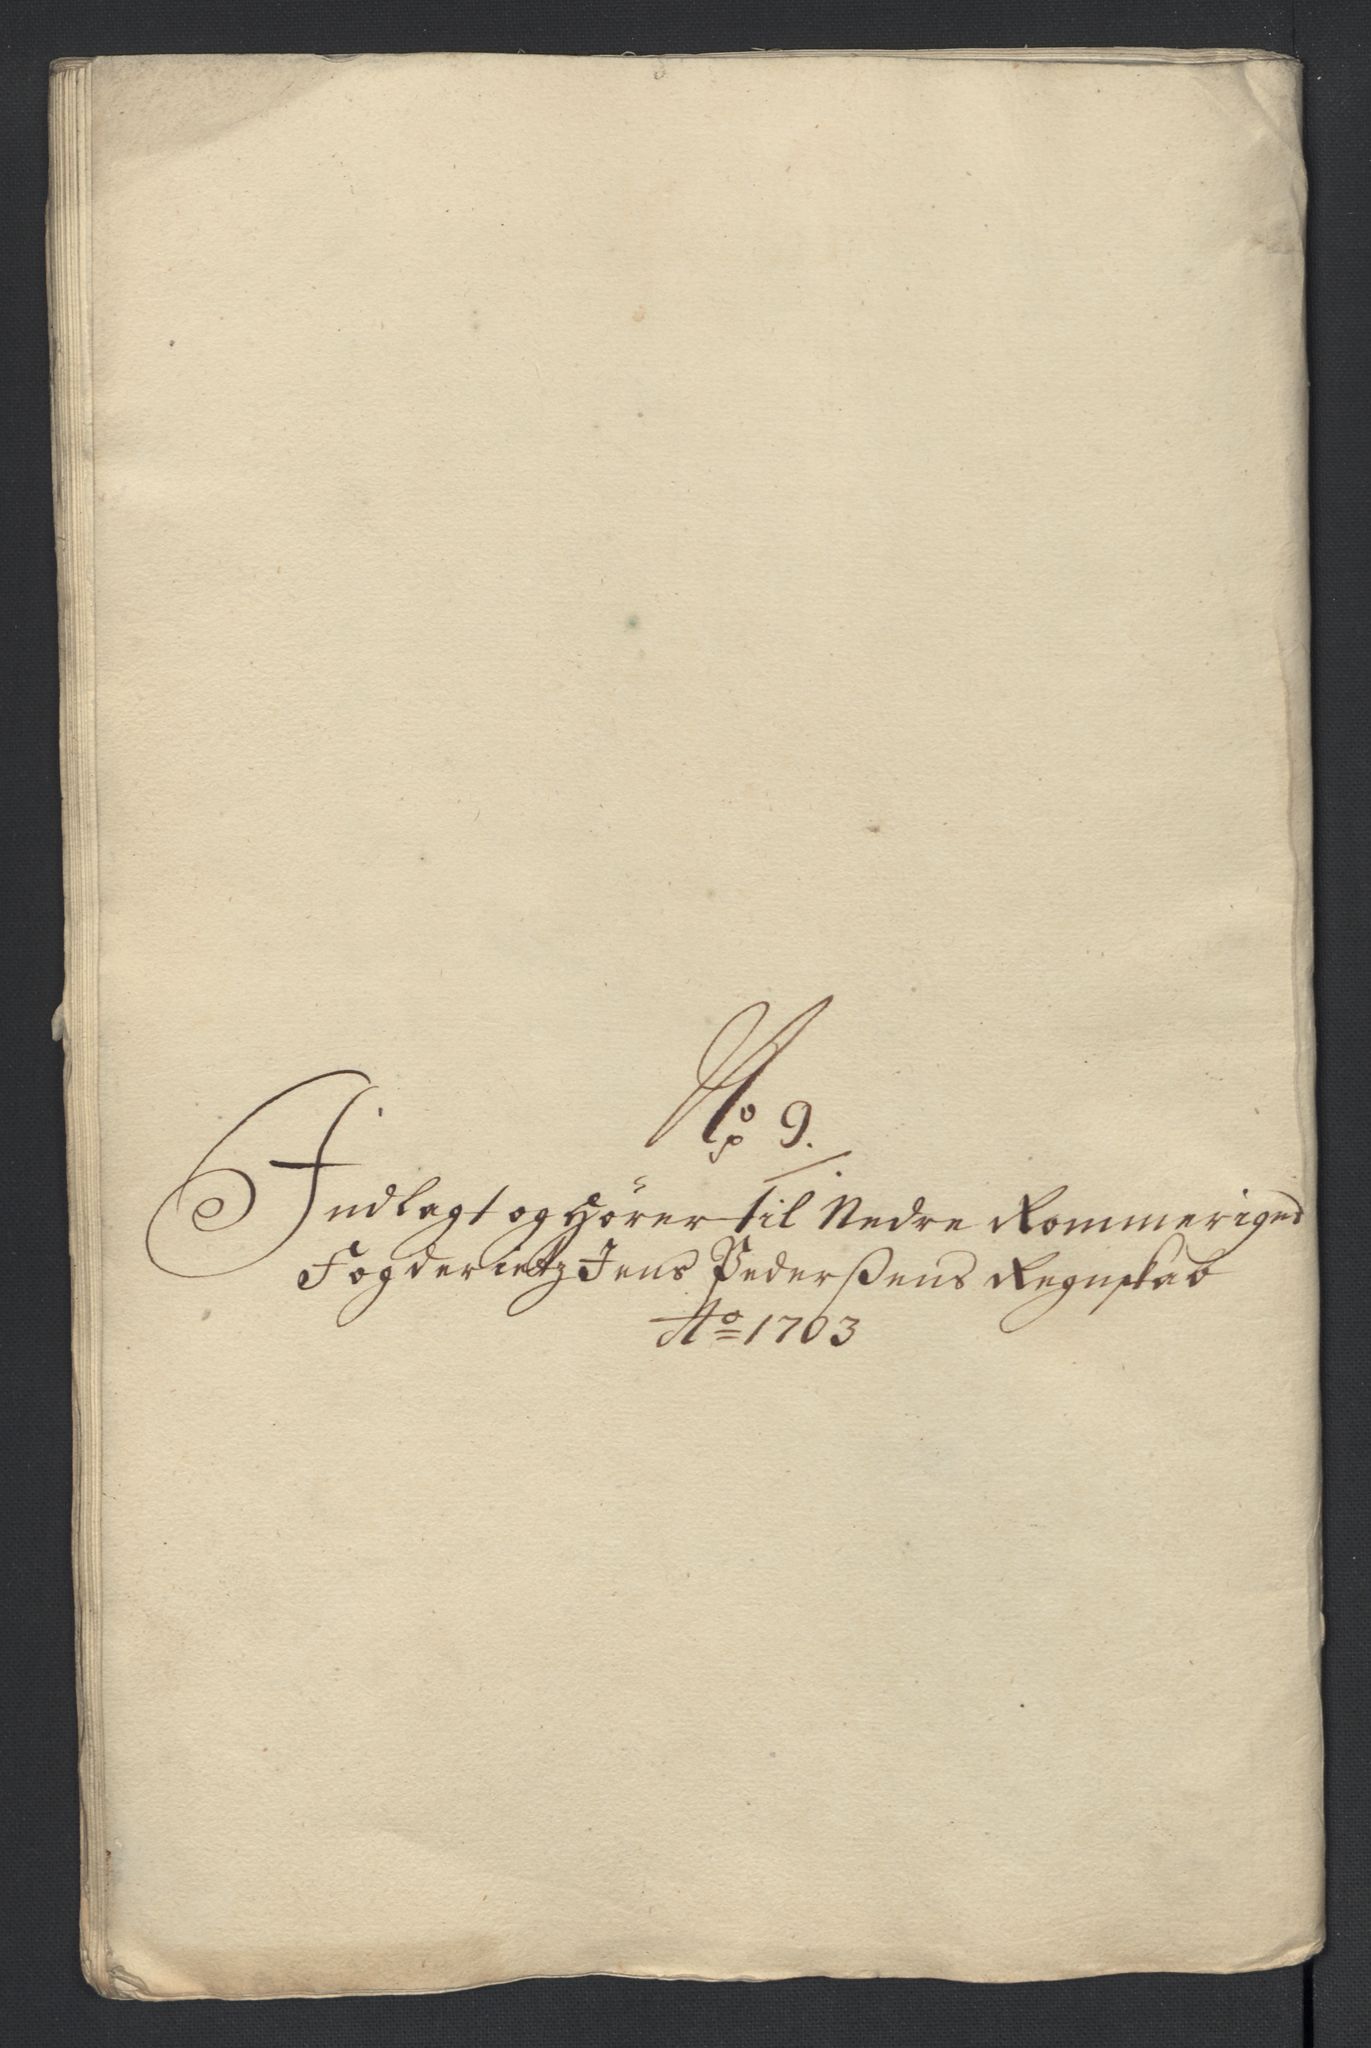 No 9.
Indlagt og Hörer til Nedre Rommeriges
Fogderietz Jens Pederßens Regnskab
Ao 1703